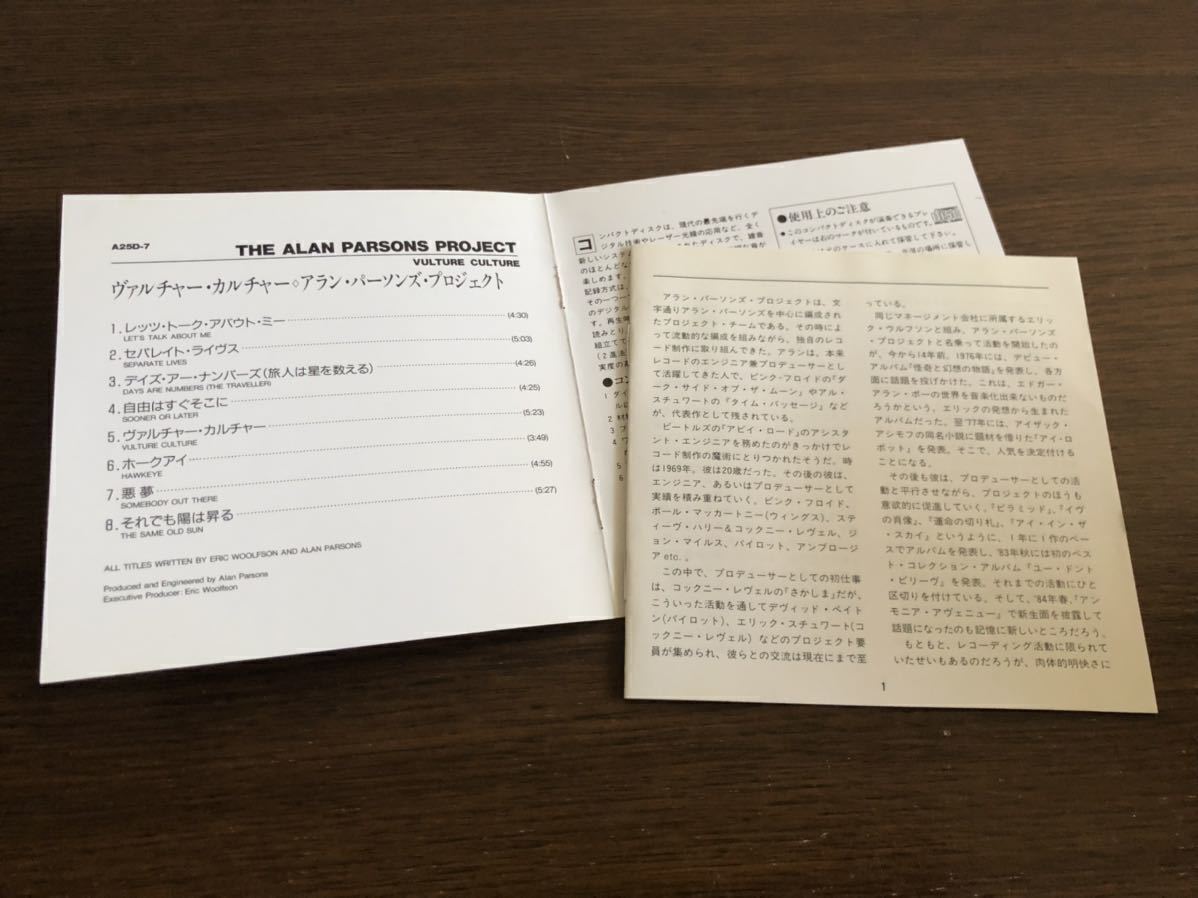 A25D-7
THE ALAN PARSONS PROJECT
VULTURE CULTURE
ヴァルチャー・カルチャー◇アラン・パーソンズ・プロジェクト
1. レッツ・トーク・アバウト・ミー (4:30)
LET'S TALK ABOUT ME
2. セパレイト・ライヴス (5:03)
SEPARATE LIVES
3. デイズ・アー・ナンバーズ(旅人は星を数える) (4:26)
DAYS ARE NUMBERS (THE TRAVELLER)
4. 自由はすぐそこに (4:25)
SOONER OR LATER
5. ヴァルチャー・カルチャー (5:23)
VULTURE CULTURE
6. ホークアイ (3:49)
HAWKEYE
7. 悪夢 (4:55)
SOMEBODY OUT THERE
8. それでも陽は昇る (5:27)
THE SAME OLD SUN
ALL TITLES WRITTEN BY ERIC WOOLFSON AND ALAN PARSONS
Produced and Engineered by Alan Parsons
Executive Producer: Eric Woolfson
コンパクトディスクは、現代の最先端を行くデ
ジタル技術やレーザー光線の応用など、全く
新しいシステム
のほとんどな
楽しめます。
記録方式は、
その一つ一つ
のデジタル
す。再生時
読みとり、
組立てて
(2進法
実度の
●コン
●使用上のご注意
●このコンパクトディスクが演奏できるプレ
イヤーは右のマークが付いているものです。
アラン・パーソンズ・プロジェクトは、文
字通りアラン・パーソンズを中心に編成され
たプロジェクト・チームである。その時によ
って流動的な編成を組みながら、独自のレコ
ード制作に取り組んできた。アランは、本来
レコードのエンジニア兼プロデューサーとし
て活躍してきた人で、ピンク・フロイドの『ダ
ーク・サイド・オブ・ザ・ムーン』やアル・
スチュワートの『タイム・パッセージ』など
が、代表作として残されている。
ビートルズの『アビイ・ロード』のアシスタ
ント・エンジニアを務めたのがきっかけでレ
コード制作の魔術にとりつかれたそうだ。時
は1969年。彼は20歳だった。その後の彼は、
エンジニア、あるいはプロデューサーとして
実績を積み重ねていく。ピンク・フロイド、
ポール・マッカートニー(ウィングス)、ステ
ィーヴ・ハリー&コックニー・レヴェル、ジ
ョン・マイルス、パイロット、アンブロージ
ア etc.。
この中で、プロデューサーとしての初仕事
は、コックニー・レヴェルの『さかしま』だが、
こういった活動を通してデヴィッド・ペイト
ン(パイロット)、エリック・スチュワート(コ
ックニー・レヴェル) などのプロジェクト要
員が集められ、彼らとの交流は現在にまで至
っている。
同じマネージメント会社に所属するエリッ
ク・ウルフソンと組み、アラン・パーソンズ
・プロジェクトと名乗って活動を開始したの
が、今から14年前。1976年には、デビュー・
アルバム『怪奇と幻想の物語』を発表し、各方
面に話題を投げかけた。これは、エドガー・
アラン・ポーの世界を音楽化出来ないものだ
ろうかという、エリックの発想から生まれた
アルバムだった。翌'77年には、アイザック・
アシモフの同名小説に題材を借りた『アイ・ロ
ボット』を発表。そこで、人気を決定付ける
ことになる。
その後も彼は、プロデューサーとしての活
動と平行させながら、プロジェクトのほうも
意欲的に促進していく。『ピラミッド』、『イヴ
の肖像』、『運命の切り札』、『アイ・イン・ザ
・スカイ』というように、1年に1作のペー
スでアルバムを発表し、'83年秋には初のベス
ト・コレクション・アルバム『ユー・ドント
・ビリーヴ』を発表。それまでの活動にひと
区切りを付けている。そして、'84年春、『アン
モニア・アヴェニュー』で新生面を披露して
話題になったのも記憶に新しいところだろう。
もともと、レコーディング活動に限られて
いたせいもあるのだろうが、肉体的明快さに
1